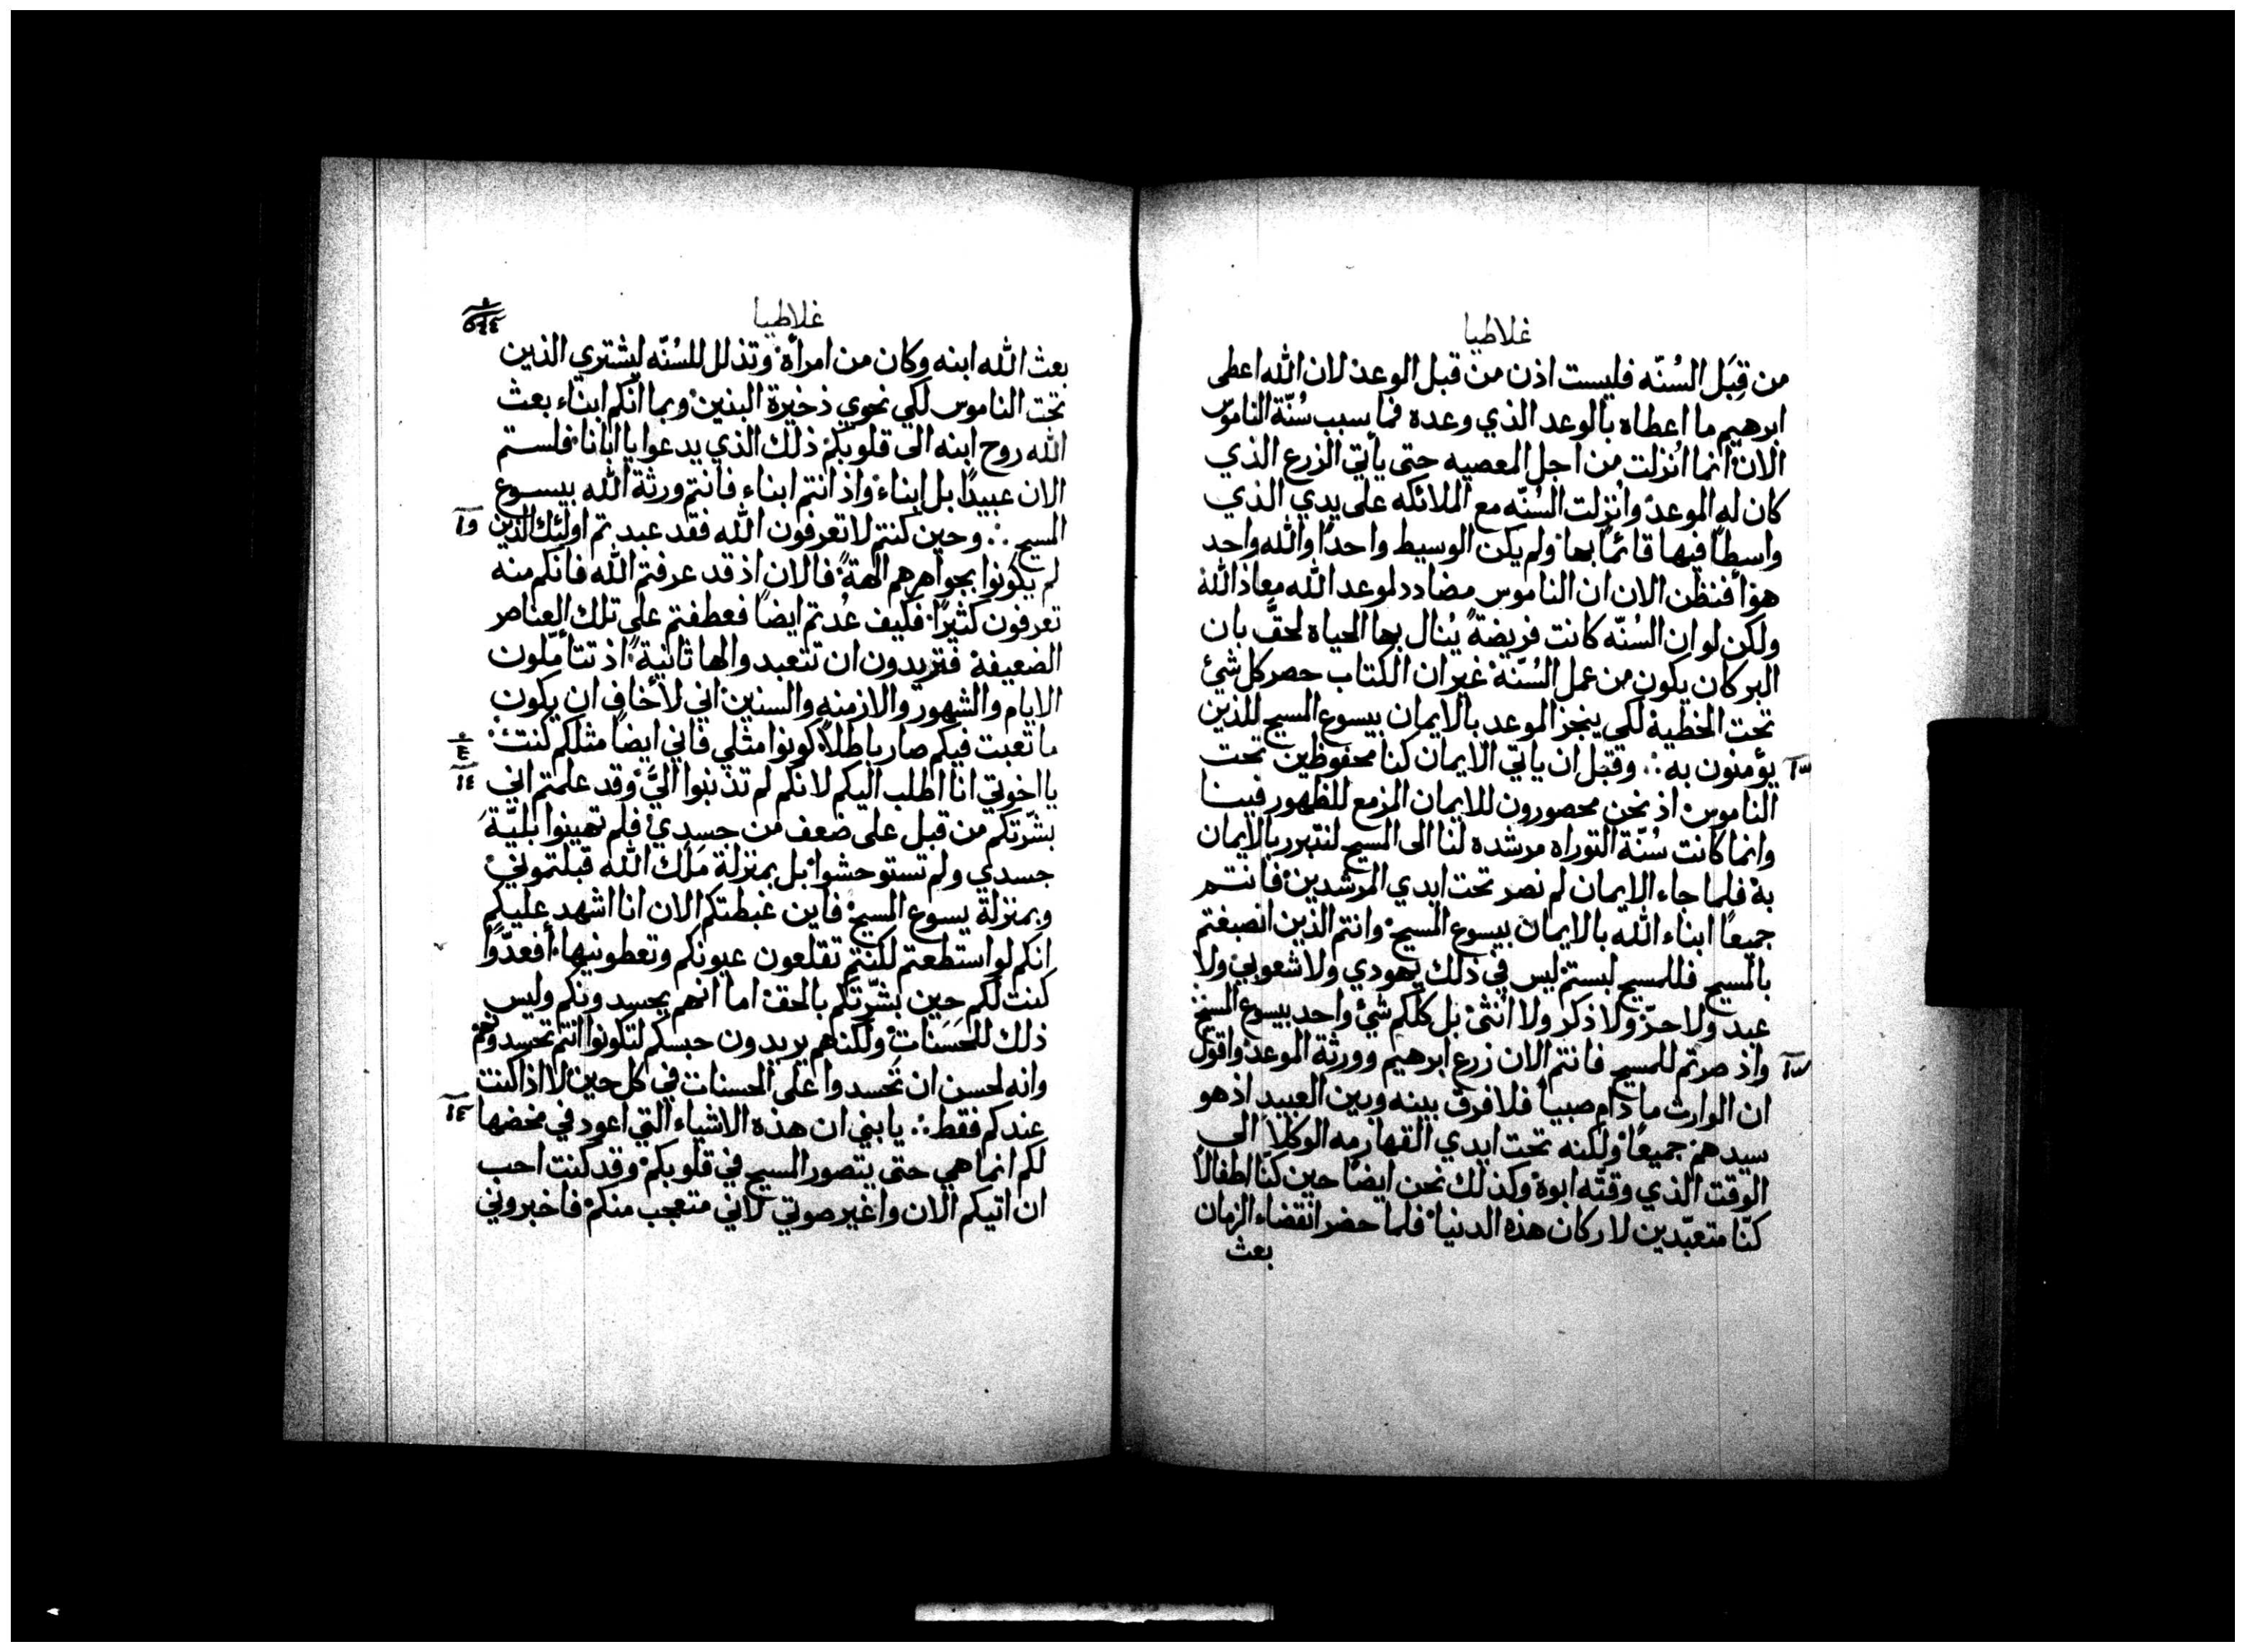 غلاطيا
من قِبَل السُنّه فليست اذن من قبل الوعد لان الله اعطى
ابرهيم ما اعطاه بالوعد الذي وعده فما سبب سُنّة الناموس
الان انما انُزلت من اجل المعصيه حتى يأتي الزرع الذي
كان له الموعد وانُزلت السُنّه مع الملائكه على يدي الذي
واسطاً فيها قائماً بها ولم يكن الوسيط واحداً والله واحد
هو أفنظن الان ان الناموس مضادد لموعد الله معاذ الله
ولكن لو ان السُنّه كانت فريضةً يُنال بها الحياه لحقَّ بان
البر كان يكون من عمل السُنّة غير ان الكتاب حصر كل شئ
تحت الخطية لكي ينجز الموعد بالايمان بيسوع المسيح للذين
يؤمنون به ؞ وقبل ان ياتي الايمان كنا محفوظين تحت
الناموس اذ نحن محصورون للايمان المزمع للظهور فينا
وانما كانت سُنّة التوراه مرشده لنا الى المسيح لنتبرر بالايمان
به فلما جاء الايمان لم نصر تحت ايدي المرشدين فانتم
جميعاً ابناء الله بالايمان بيسوع المسيح وانتم الذين انصبغتم
بالمسيح فللمسيح لبستم ليس في ذلك يهودي ولا شعوبي ولا
عبد ولا حرّ ولا ذكر ولا انُثى بل كلكم شئ واحد بيسوع المسيح
واذ صرتم للمسيح فانتم الان زرع ابرهيم وورثة الموعد واقول
ان الوارث ما دام صبياً فلا فرق بينه وبين العبيد اذ هو
سيدهم جميعاً ولكنه تحت ايدي القهارمه الوكلا الى
الوقت الذي وقتّه ابوه وكذلك نحن ايضاً حين كنّا اطفالاً
كنّا متعبّدين لاركان هذه الدنيا فلما حضر انقضاء الزمان
بعث
غلاطيا
بعث الله ابنه وكان من امرأة وتذلل للسُنّه ليشتري الذين
تحت الناموس لكي نحوي ذخيرة البنين وبما انكم ابناء بعث
الله روح ابنه الى قلوبكم ذلك الذي يدعوا يا ابانا فلستم
الان عبيداً بل ابناء واذ انتم ابناء فانتم ورثة الله بيسوع
المسيح ؞ وحين كنتم لا تعرفون الله فقد عبدتم اولئك الذين
لم يكونوا بجواهرهم الهةً فالان اذ قد عرفتم الله فانكم منه
تعرفون كثيراً فكيف عُدتم ايضاً فعطفتم على تلك العناصر
الضعيفة فتريدون ان تتعبدوا لها ثانيةً اذ تتأملون
الايام والشهور والازمنه والسنين اني لأخاف ان يكون
ما تعبت فيكم صار باطلاً كونوا مثلي فاني ايضاً مثلكم كنت
يا اخوتي انا اطلب اليكم لانكم لم تذنبوا اليَّ وقد علمتم اني
بشّرتكم من قبل على ضعف من جسدي فلم تهينوا بليّة
جسدي ولم تستوحشوا بل بمنزلة مَلَك الله قبلتموني
وبمنزلة يسوع المسيح فاين غبطتكم الان انا اشهد عليكم
انكم لو استطعتم لكنتم تقلعون عيونكم وتعطونيها أفعدّوا
كنت لكم حين بشّرتكم بالحق اما انهم يحسدونكم وليس
ذلك للحَسَنات ولكنهم يريدون حبسكم لتكونوا انتم تحسدونهم
وانه لحسن ان تُحسدوا على الحسنات في كل حين لا اذا كنت
عندكم فقط ؞ يا بني ان هذه الاشياء التي اعود في مخضها
لكم انما هي حتى يتصور المسيح في قلوبكم وقد كنت احب
ان اتيكم الان واغير صوتي لاني متعجب منكم فاخبروني